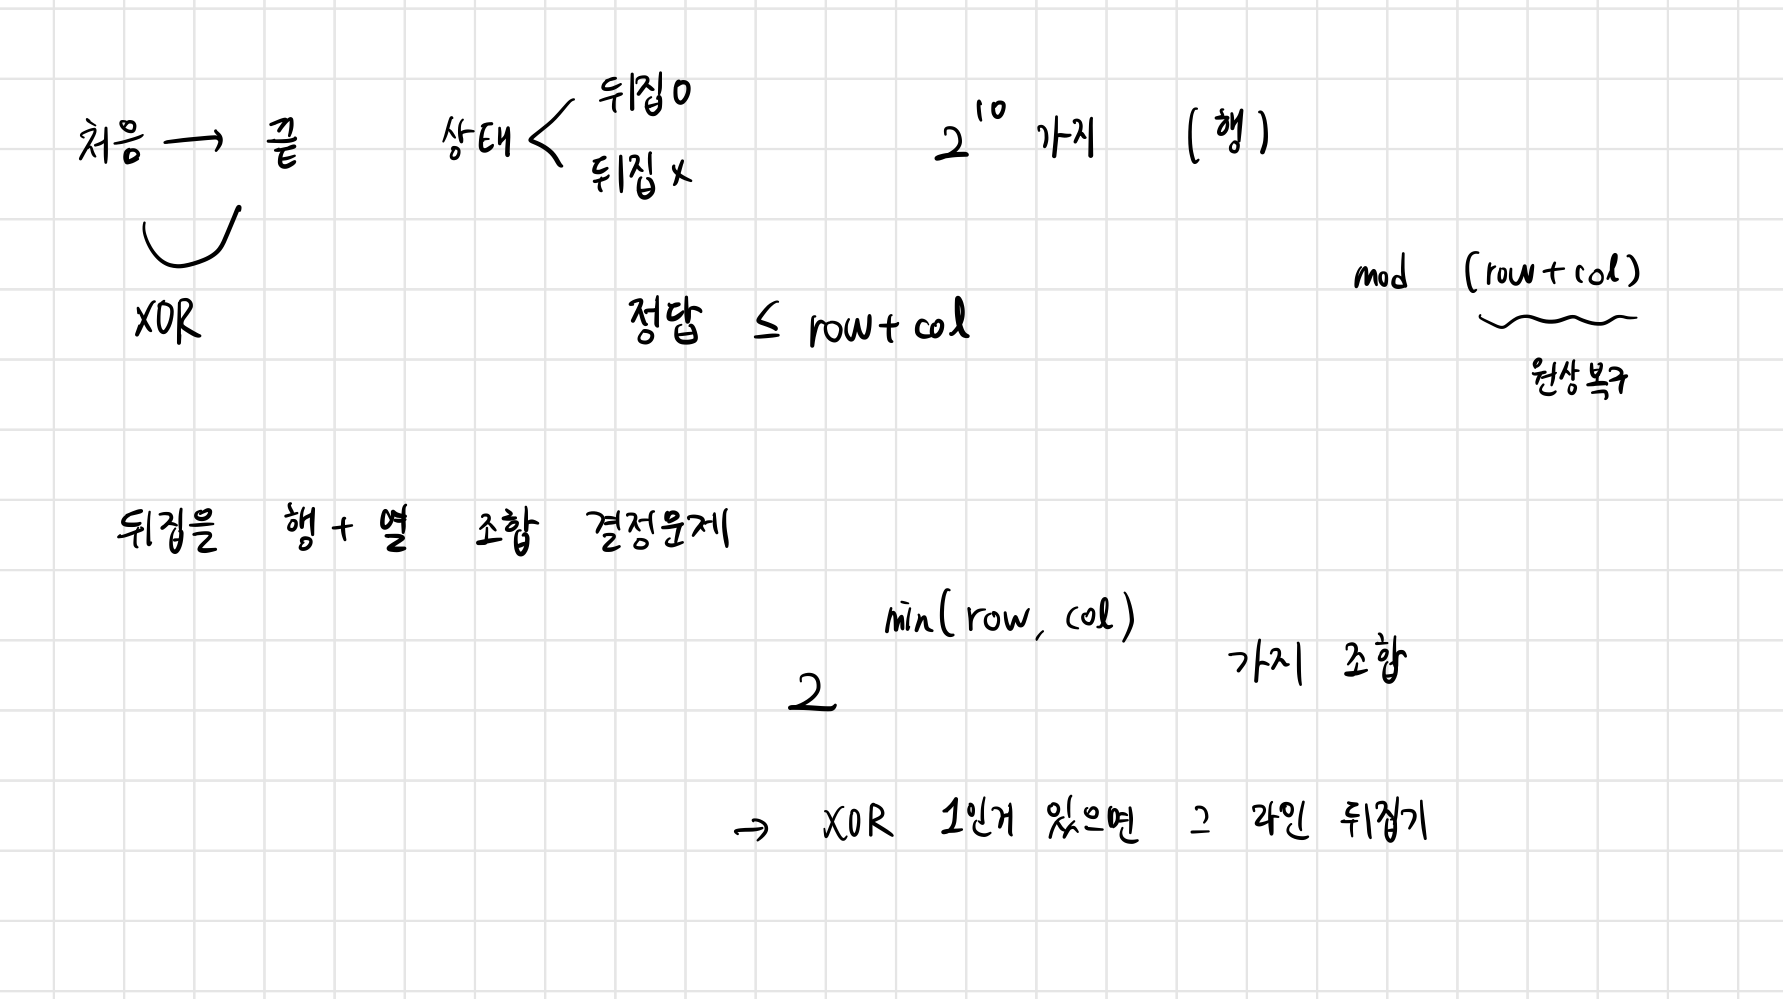 처음 → 끝
XOR
상태 < 뒤집O
뒤집X
2^10 가지 (행)
정답 ≤ row+col
mod (row+col)
원상복구
뒤집을 행+열 조합 결정문제
2^min(row, col) 가지 조합
→ XOR 1인게 있으면 그 라인 뒤집기